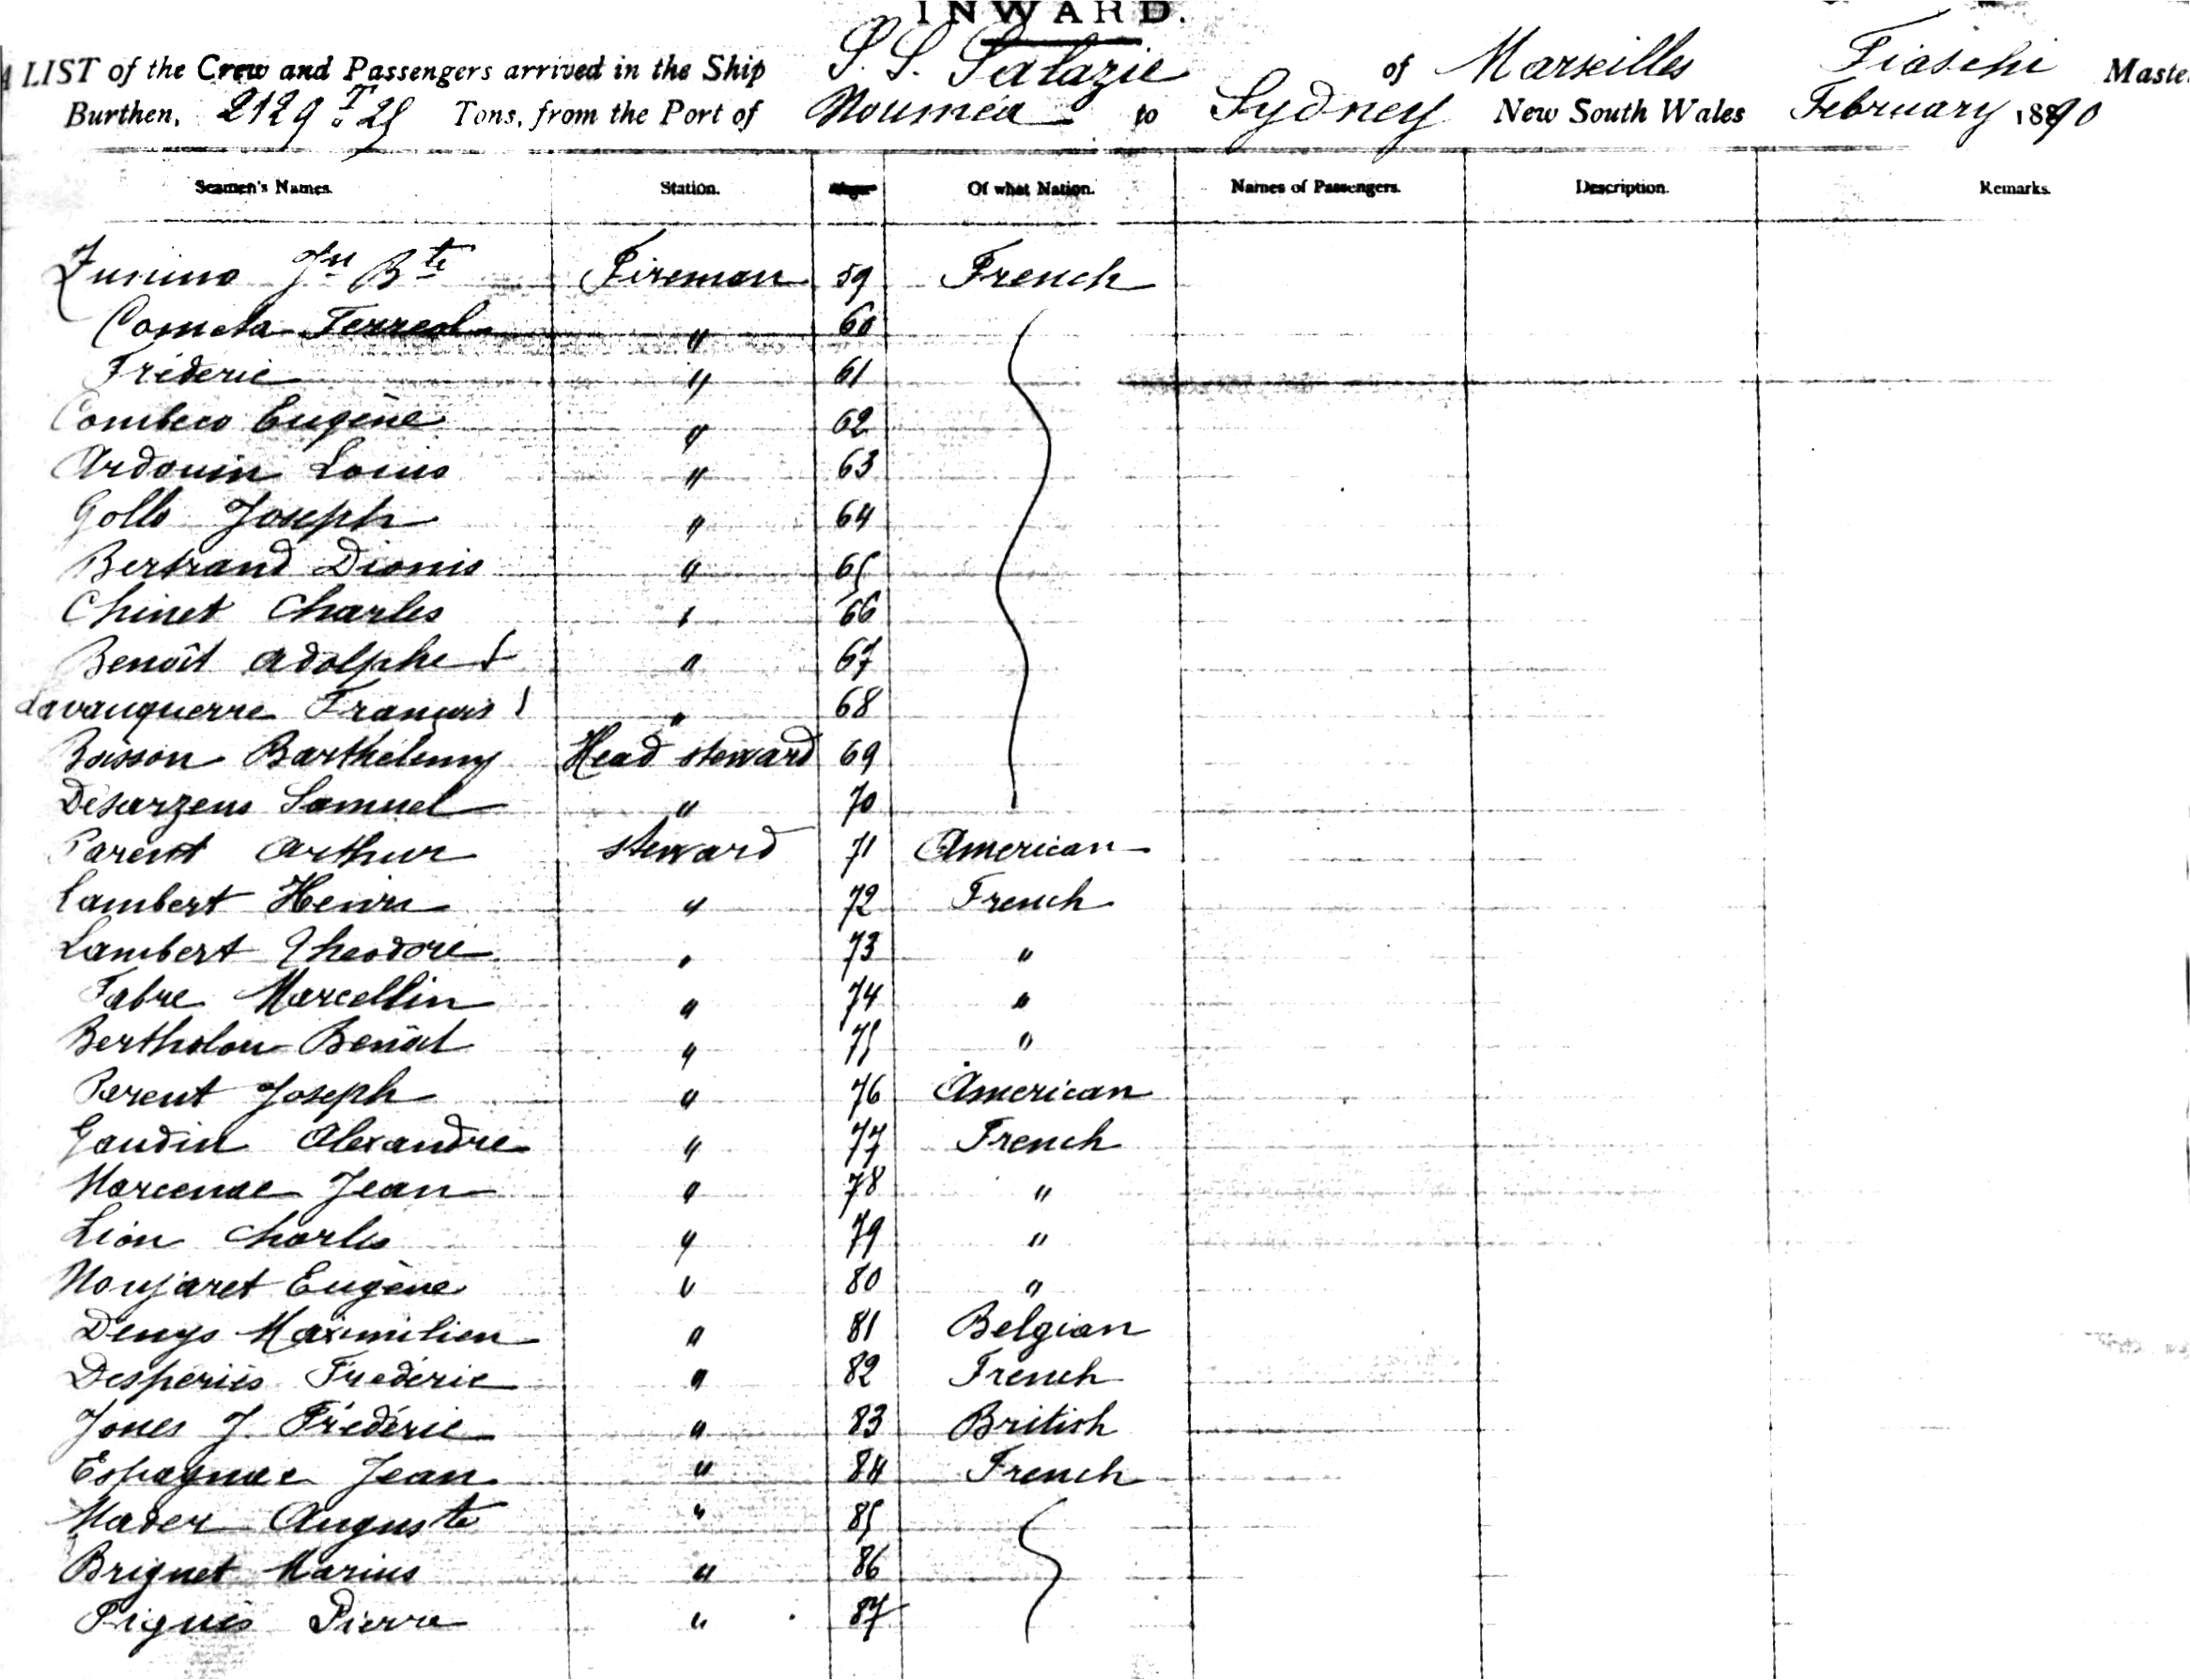 INWARD.
A LIST of the Crew and Passengers arrived in the Ship S. S. Salazie of Marseilles Fiaschi Master
Burthen, 2129 T. 25 Tons, from the Port of Nouméa to Sydney New South Wales February 1890
Seamen's Names. Station. Of what Nation. Names of Passengers. Description. Remarks.
Jn Bte Fireman 59 French
Cometa Ferreol " 60
Fréderic " 61
Eugène " 62
Ardouin Louis " 63
Gollo Joseph " 64
Bertrand Dionis " 65
Chinet Charles " 66
Benoît Adolphe " 67
Lavauquerre François " 68
Boisson Barthélemy Head steward 69
Désarzens Samuel " 70
Parent Arthur steward 71 American
Lambert Henri " 72 French
Lambert Théodore " 73 "
Fabre Marcellin " 74 "
Bertholon Benoît " 75 "
Parent Joseph " 76 American
Gaudin Alexandre " 77 French
Marcenac Jean " 78 "
Lion Charles " 79 "
Noujaret Eugène " 80 "
Denys Maximilien " 81 Belgian
Despériès Frédéric " 82 French
Jones J. Frédéric " 83 British
Espagnac Jean " 84 French
Mader Auguste " 85
Brignet Marius " 86
Pigués Pierre " 87